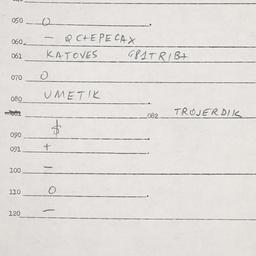 050 O
060 — QC+EPECAX
061 KATOVES GP1TRIB+
070 O
080 UMETIK
081 082 TROJERDIK
090 $
091 +
100 —
110 O
120 —